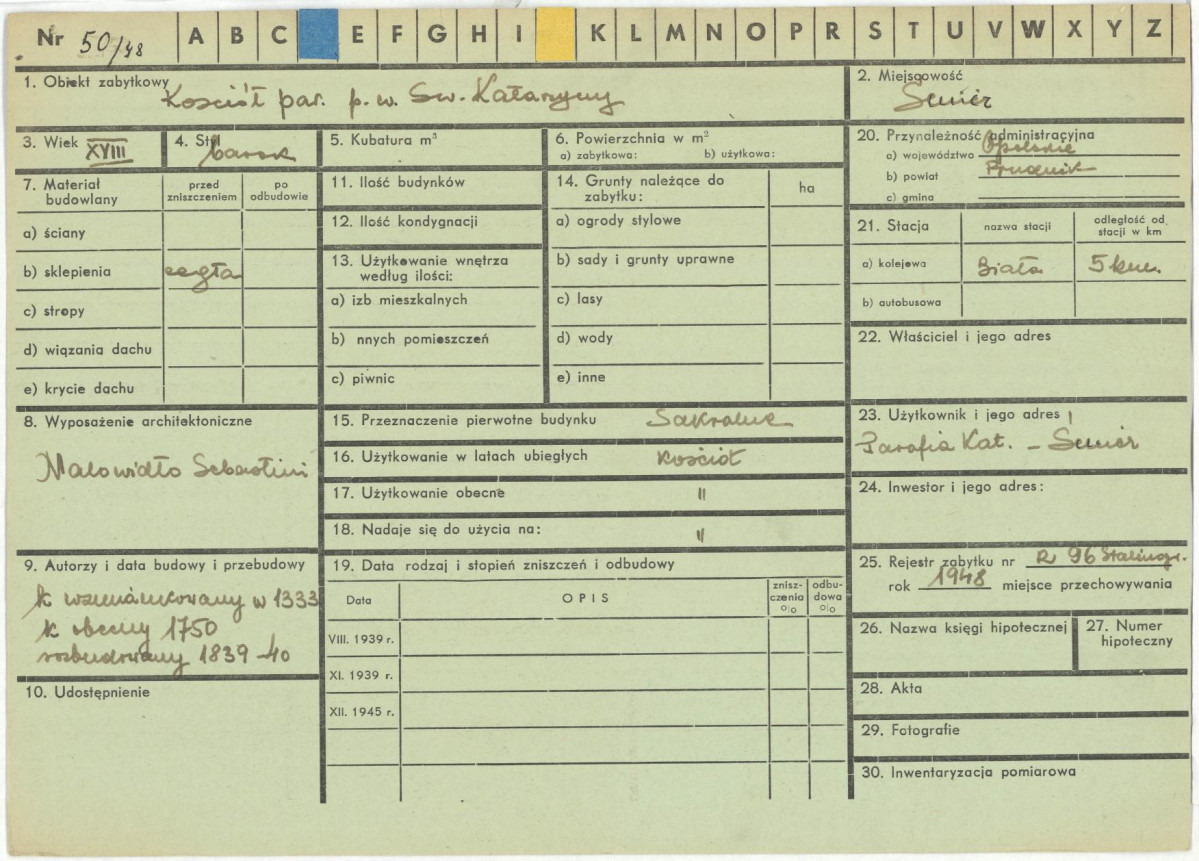 Nr 50/48 A B C E F G H I K L M N O P R S T U V W X Y Z
1. Obiekt zabytkowy Kościół par. p. w. Św. Katarzyny
2. Miejscowość
3. Wiek XVIII
4. Styl barok
5. Kubatura m³
6. Powierzchnia w m²
a) zabytkowa: b) użytkowa:
20. Przynależność administracyjna
a) województwo Opolskie
b) powiat Prudnik
c) gmina
7. Materiał budowlany
przed zniszczeniem
po odbudowie
a) ściany
b) sklepienia cegła
c) stropy
d) wiązania dachu
e) krycie dachu
11. Ilość budynków
12. Ilość kondygnacji
13. Użytkowanie wnętrza
według ilości:
a) izb mieszkalnych
b) nnych pomieszczeń
c) piwnic
14. Grunty należące do
zabytku:
ha
a) ogrody stylowe
b) sady i grunty uprawne
c) lasy
d) wody
e) inne
21. Stacja
nazwa stacji
odległość od
stacji w km
a) kolejowa Biała 5 km.
b) autobusowa
22. Właściciel i jego adres
8. Wyposażenie architektoniczne
Malowidło Sebastini
15. Przeznaczenie pierwotne budynku Sakralne
16. Użytkowanie w latach ubiegłych Kościół
17. Użytkowanie obecne "
18. Nadaje się do użycia na: "
23. Użytkownik i jego adres
Parafia Kat. –
24. Inwestor i jego adres:
9. Autorzy i data budowy i przebudowy
k wzmiankowany w 1333
k obecny 1750
rozbudowany 1839-40
10. Udostępnienie
19. Data rodzaj i stopień zniszczeń i odbudowy
Data
OPIS
znisz-
czenia
o|o
odbu-
dowa
o|o
VIII. 1939 r.
XI. 1939 r.
XII. 1945 r.
25. Rejestr zabytku nr R 96 Stalinogr.
rok 1948 miejsce przechowywania
26. Nazwa księgi hipotecznej
27. Numer
hipoteczny
28. Akta
29. Fotografie
30. Inwentaryzacja pomiarowa